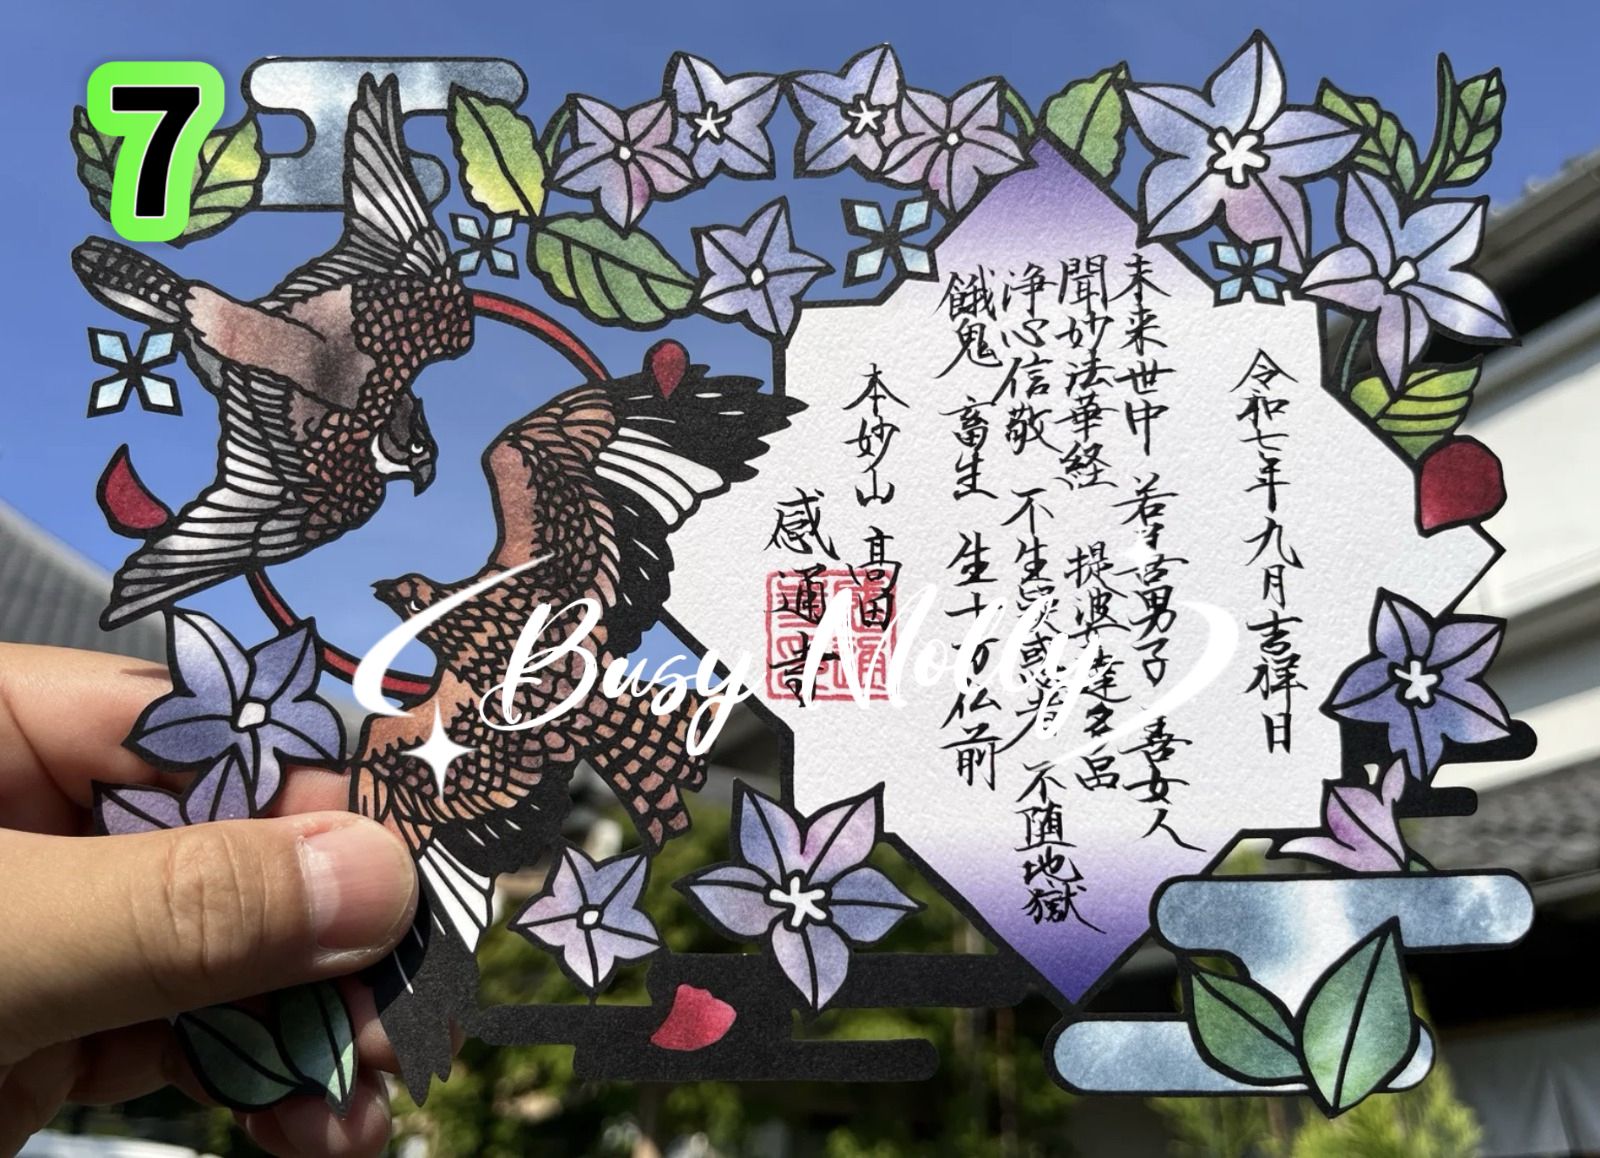 7
令和七年九月吉祥日
未来世中 若善男子 善女人
聞妙法華経 提婆達多品
浄心信敬 不生疑惑者 不堕地獄
餓鬼 畜生 生十方仏前
本妙山 髙田
感通寺
Busy Molly